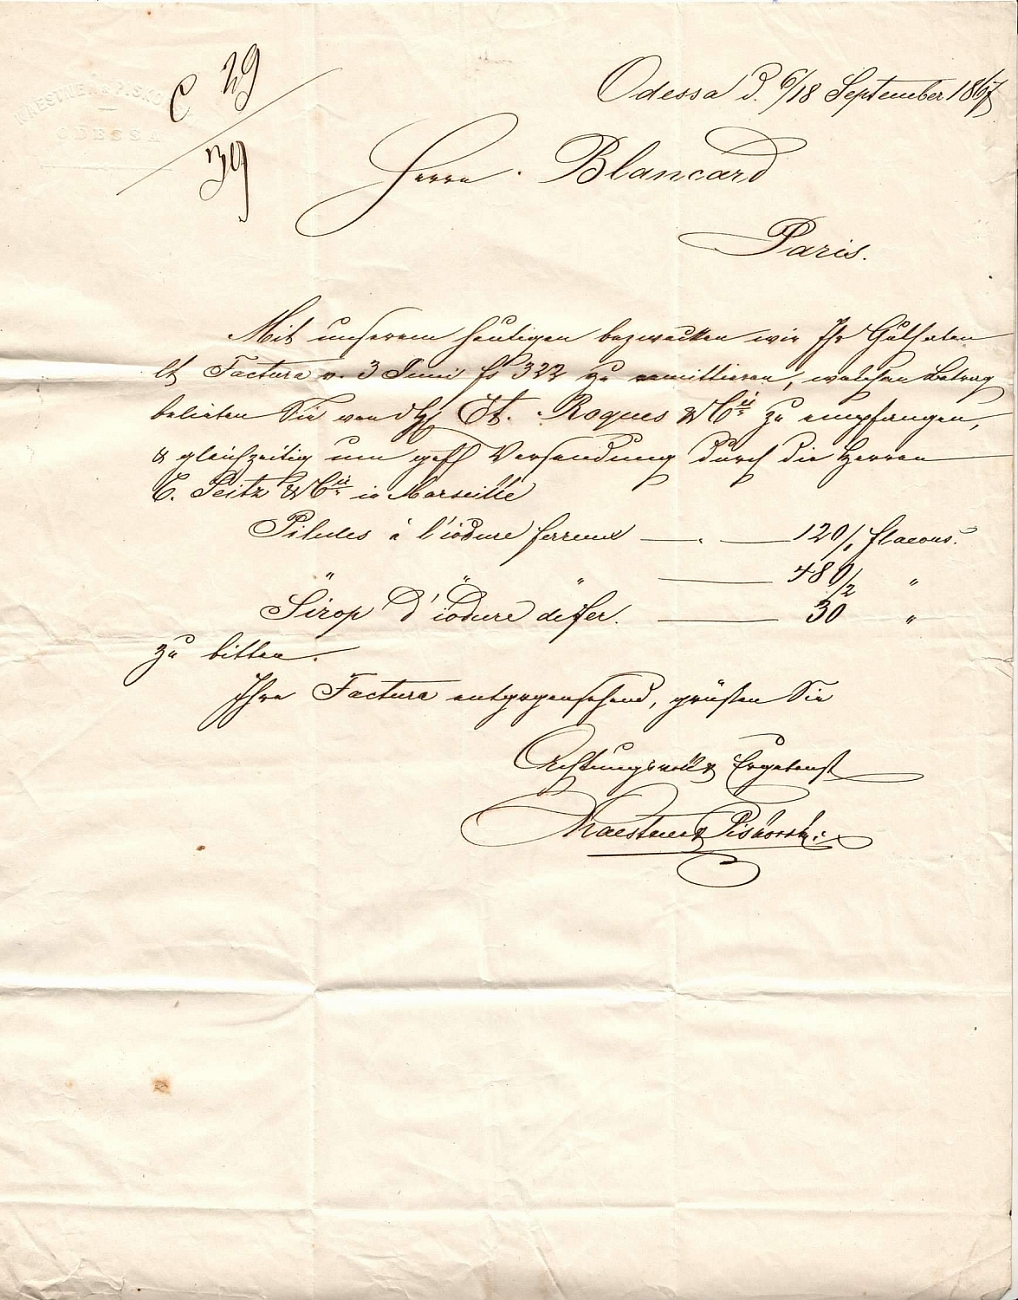 C 29
39
ODESSA
Odessa d. 6/18 September 1867
Herrn Blancard
Paris.
Mit unserem Heutigen bezwecken wir Ihr Guthaben
lt Factura v. 3 Juni fs 322 zu remittieren, welchen Betrag
belieben Sie von St. Roques & Cie zu empfangen,
& gleichzeitig um gefl Versendung durch die Herren
C. Peitz & Cie in Marseille
Pilules à l'iodure ferreux — 120/1 flacons.
" " " — 480/2 "
Sirop d'iodure de fer. — 30 "
zu bitten.
Ihre Factura entgegensehend, grüßen Sie
Achtungsvoll & Ergebenst
Kaestner & Piskorski